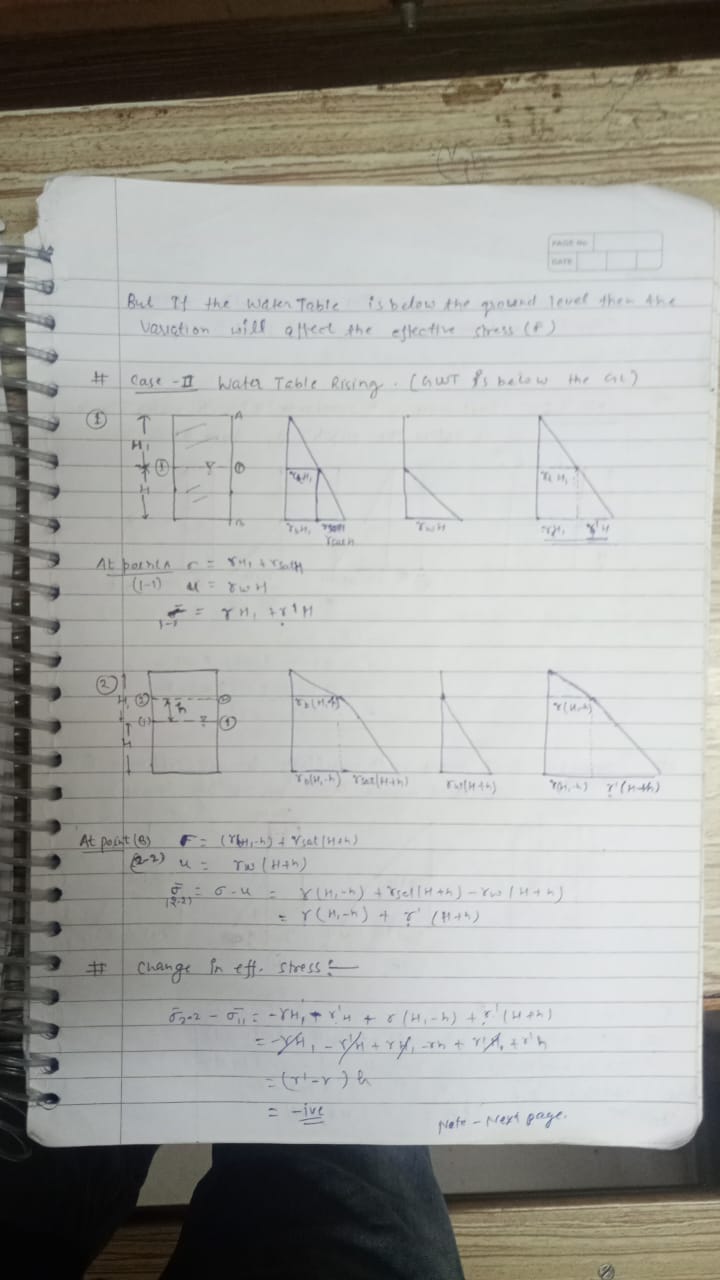 PAGE No
DATE
But If the Water Table is below the ground level then the
Variation will affect the effective stress (σ̄)
# Case - II Water Table Rising. (GWT is below the GL)
①
A
H₁
① ①
H
B
γtH₁
γbH₁ γsatH
γsatH
γwH
γt H₁
γH₁ γ'H
At point A σ = γH₁ + γsatH
(1-1) u = γwH
σ̄ 1-1 = γH₁ + γ'H
②
H₁ ② h ②
(1) ①
H
γb(H₁-h)
γb(H₁-h) γsat(H+h)
γw(H+h)
γ(H₁-h)
γ(H₁-h) γ'(H+h)
At point (B) σ = (γbH₁-h) + γsat(H+h)
(2-2) u = γw (H+h)
σ̄ (2-2) = σ - u = γ(H₁-h) + γsat(H+h) - γw(H+h)
= γ(H₁-h) + γ' (H+h)
# Change in eff. stress :-
σ̄2-2 - σ̄11 = -γH₁ + γ'H + γ(H₁-h) + γ'(H+h)
= -γH₁ - γ'H + γH₁ - γh + γ'H + γ'h
= (γ'-γ) h
= -ive
Note - Next page.